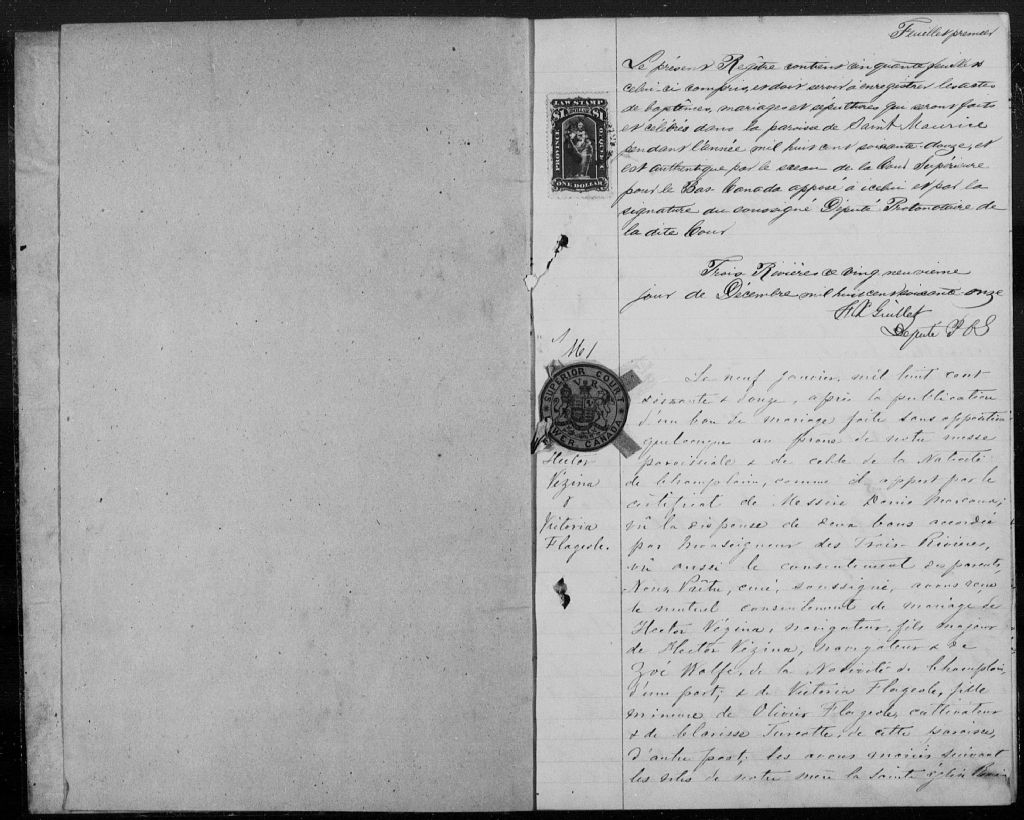 Feuillet premier
Le présent Regître contient cinquante feuillets
celui-ci compris, et doit servir à enregistrer les actes
de baptêmes, mariages et sépultures qui seront faits
et célébrés dans la paroisse de Saint Maurice
pendant l'année mil huit cent soixante-douze, et
est authentiqué par le sceau de la Cour Supérieure
pour le Bas Canada apposé à icelui et par la
signature du soussigné Député Protonotaire de
la dite Cour
Trois Rivières ce vingt neuvième
jour de Décembre mil huit cent soixante-onze
Guillet
Député P C S
LAW STAMP
$1 DOLLAR $1
PROVINCE
QUEBEC
ONE DOLLAR
M 1
SUPERIOR COURT
V R
LOWER CANADA
Hector
Vézina
&
Victoria
Flageole.
Le neuf janvier, mil huit cent
soixante & douze, après la publication
d'un ban de mariage faite sans opposition
quelconque au prone de notre messe
paroissiale & de celle de la Nativité
de Champlain, comme il appert par le
certificat de Messire Denis Marcoux;
vû la dispense de deux bans accordée
par Monseigneur des Trois-Rivières,
vû aussi le consentement des parents,
Nous Prêtre, curé, soussigné, avons reçu
le mutuel consentement de mariage de
Hector Vézina, navigateur, fils majeur
de Hector Vézina, navigateur & de
Zoé Wolfe, de la Nativité de Champlain,
d'une part; & de Victoria Flageole, fille
mineure de Olivier Flageole, cultivateur
& de Clarisse Turcotte, de cette paroisse,
d'autre part; les avons mariés suivant
les rites de notre mère la Sainte Eglise